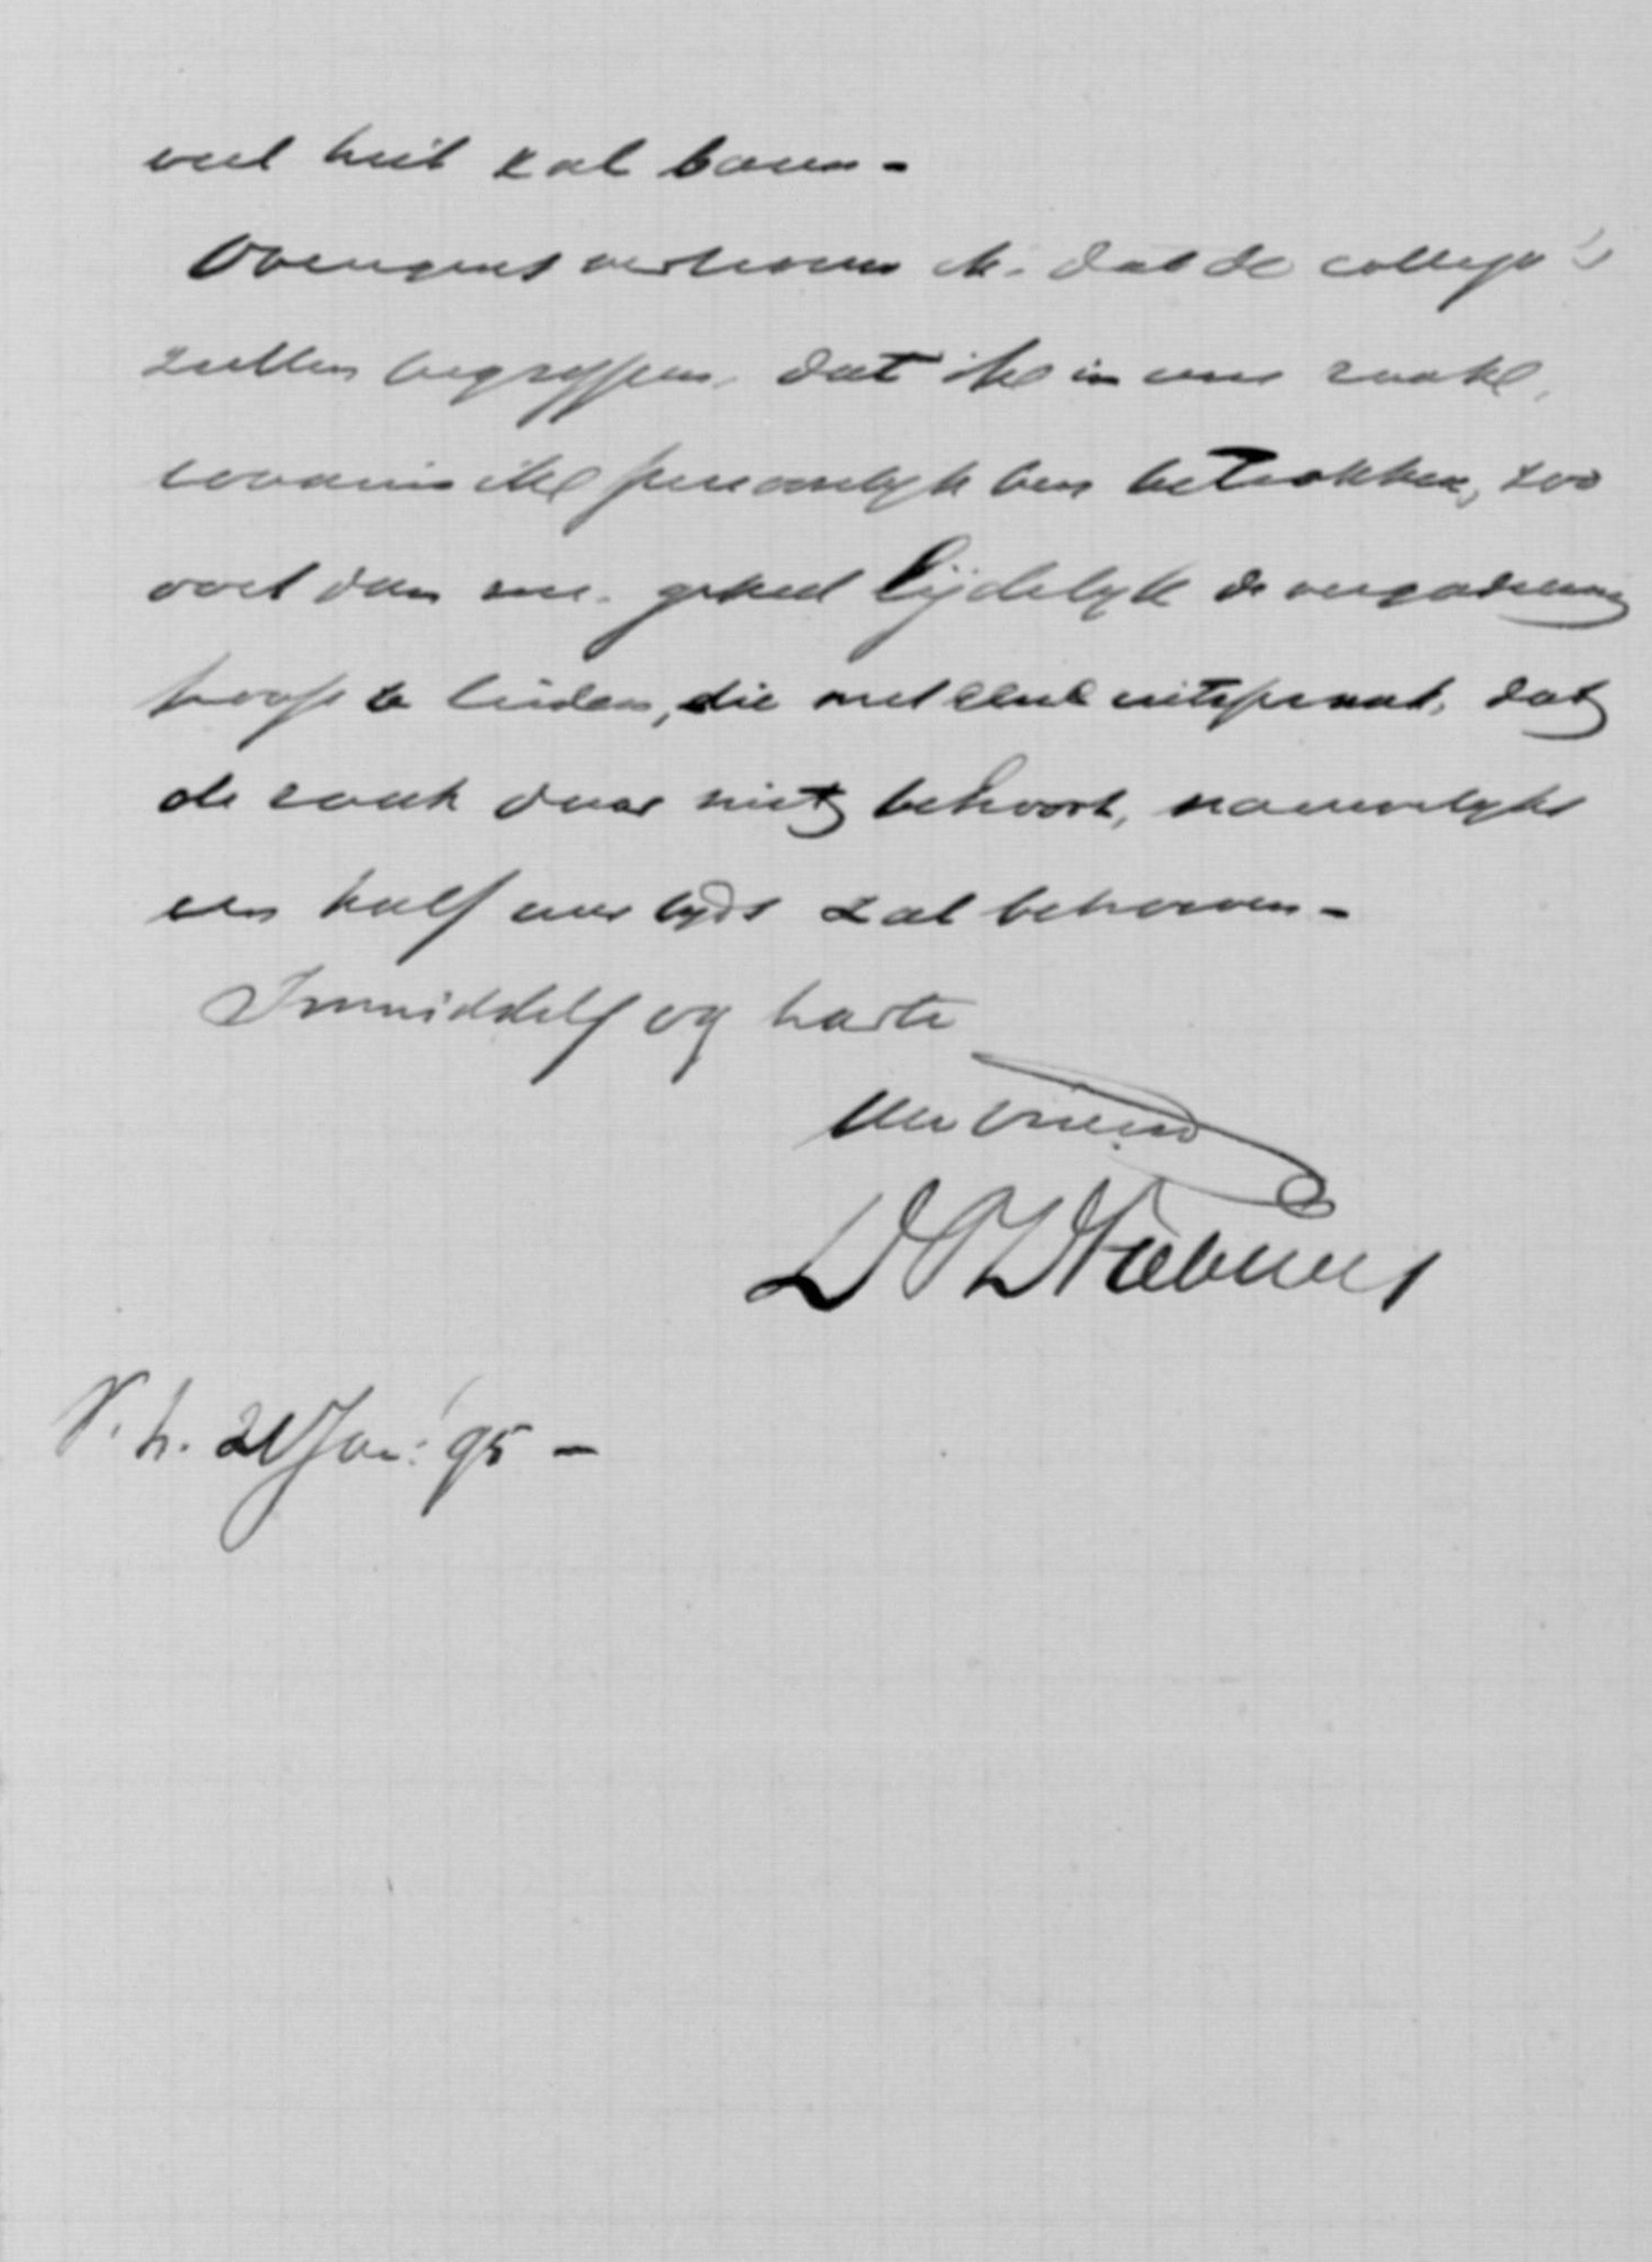 veel heil zal baren -
Overigens vertrouw ik, dat de collega's
zullen begrijpen, dat ik in eene zaak,
waarin ik persoonlijk ben betrokken, zoo
veel dan me. geheel lijdelijk de vergadering
hoop te leiden, die met elke uitspraak, dat
de zaak daar niet behoort, nauwelijks
een half uur tijds zal behoeven -
Inmiddels van harte
Uw vriend
V. h. 21 Jan: '95 -